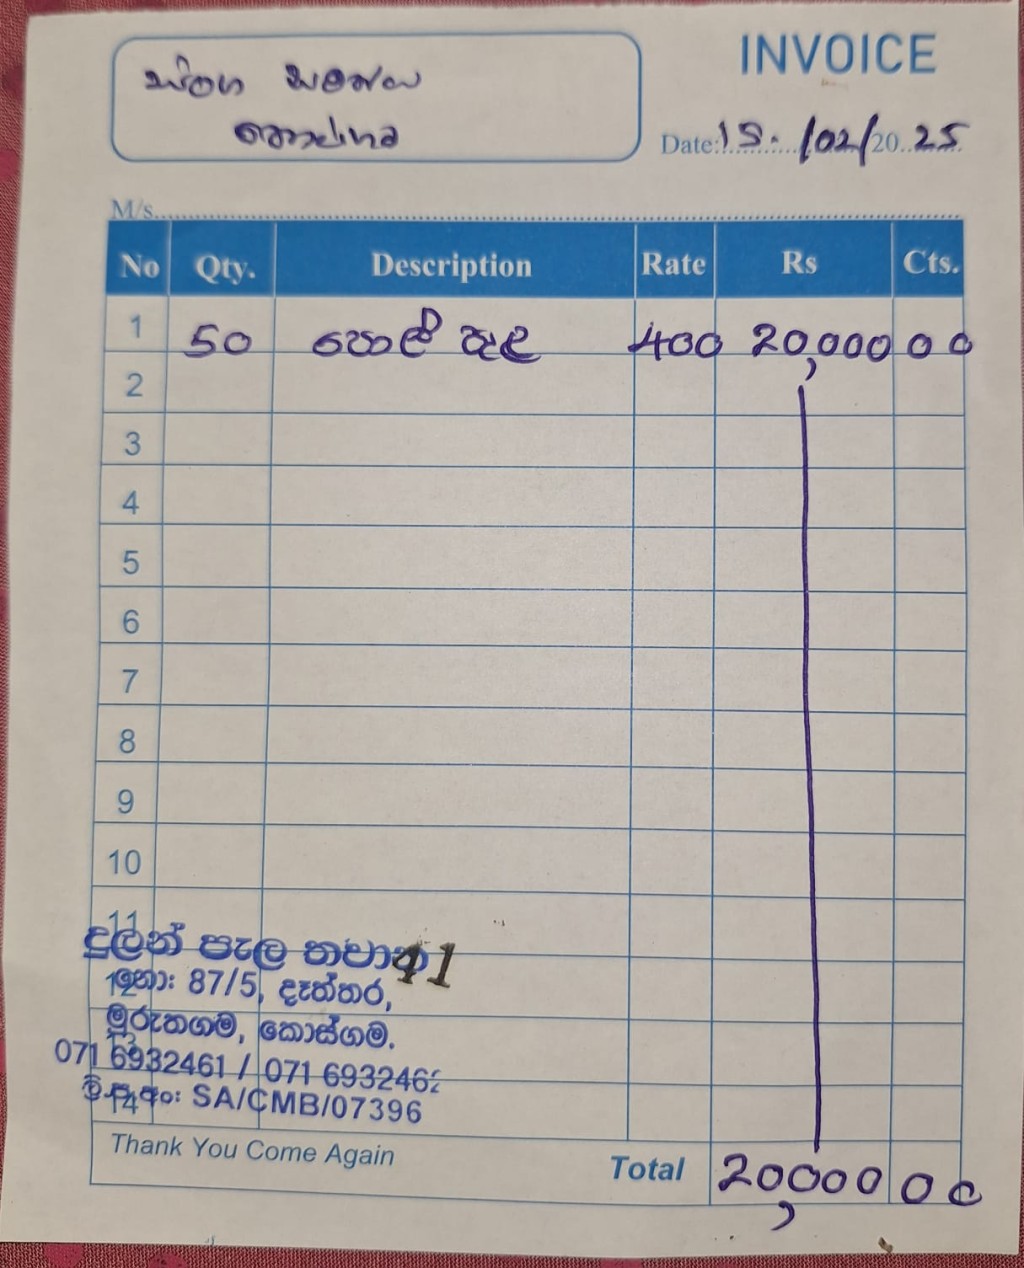 INVOICE
Date: 15. /02/20 25
M/s
No Qty. Description Rate Rs Cts.
1 50 පොල් පැල 400 20,000 00
2
3
4
5
6
7
8
9
10
11
දුලන් පැල තවාන 41
12 නො: 87/5, දැත්තර,
මුරුතගම, කොස්ගම.
13
071 6932461 / 071 6932462
14 ලි.ප.අං: SA/CMB/07396
Thank You Come Again
Total 20,000 00